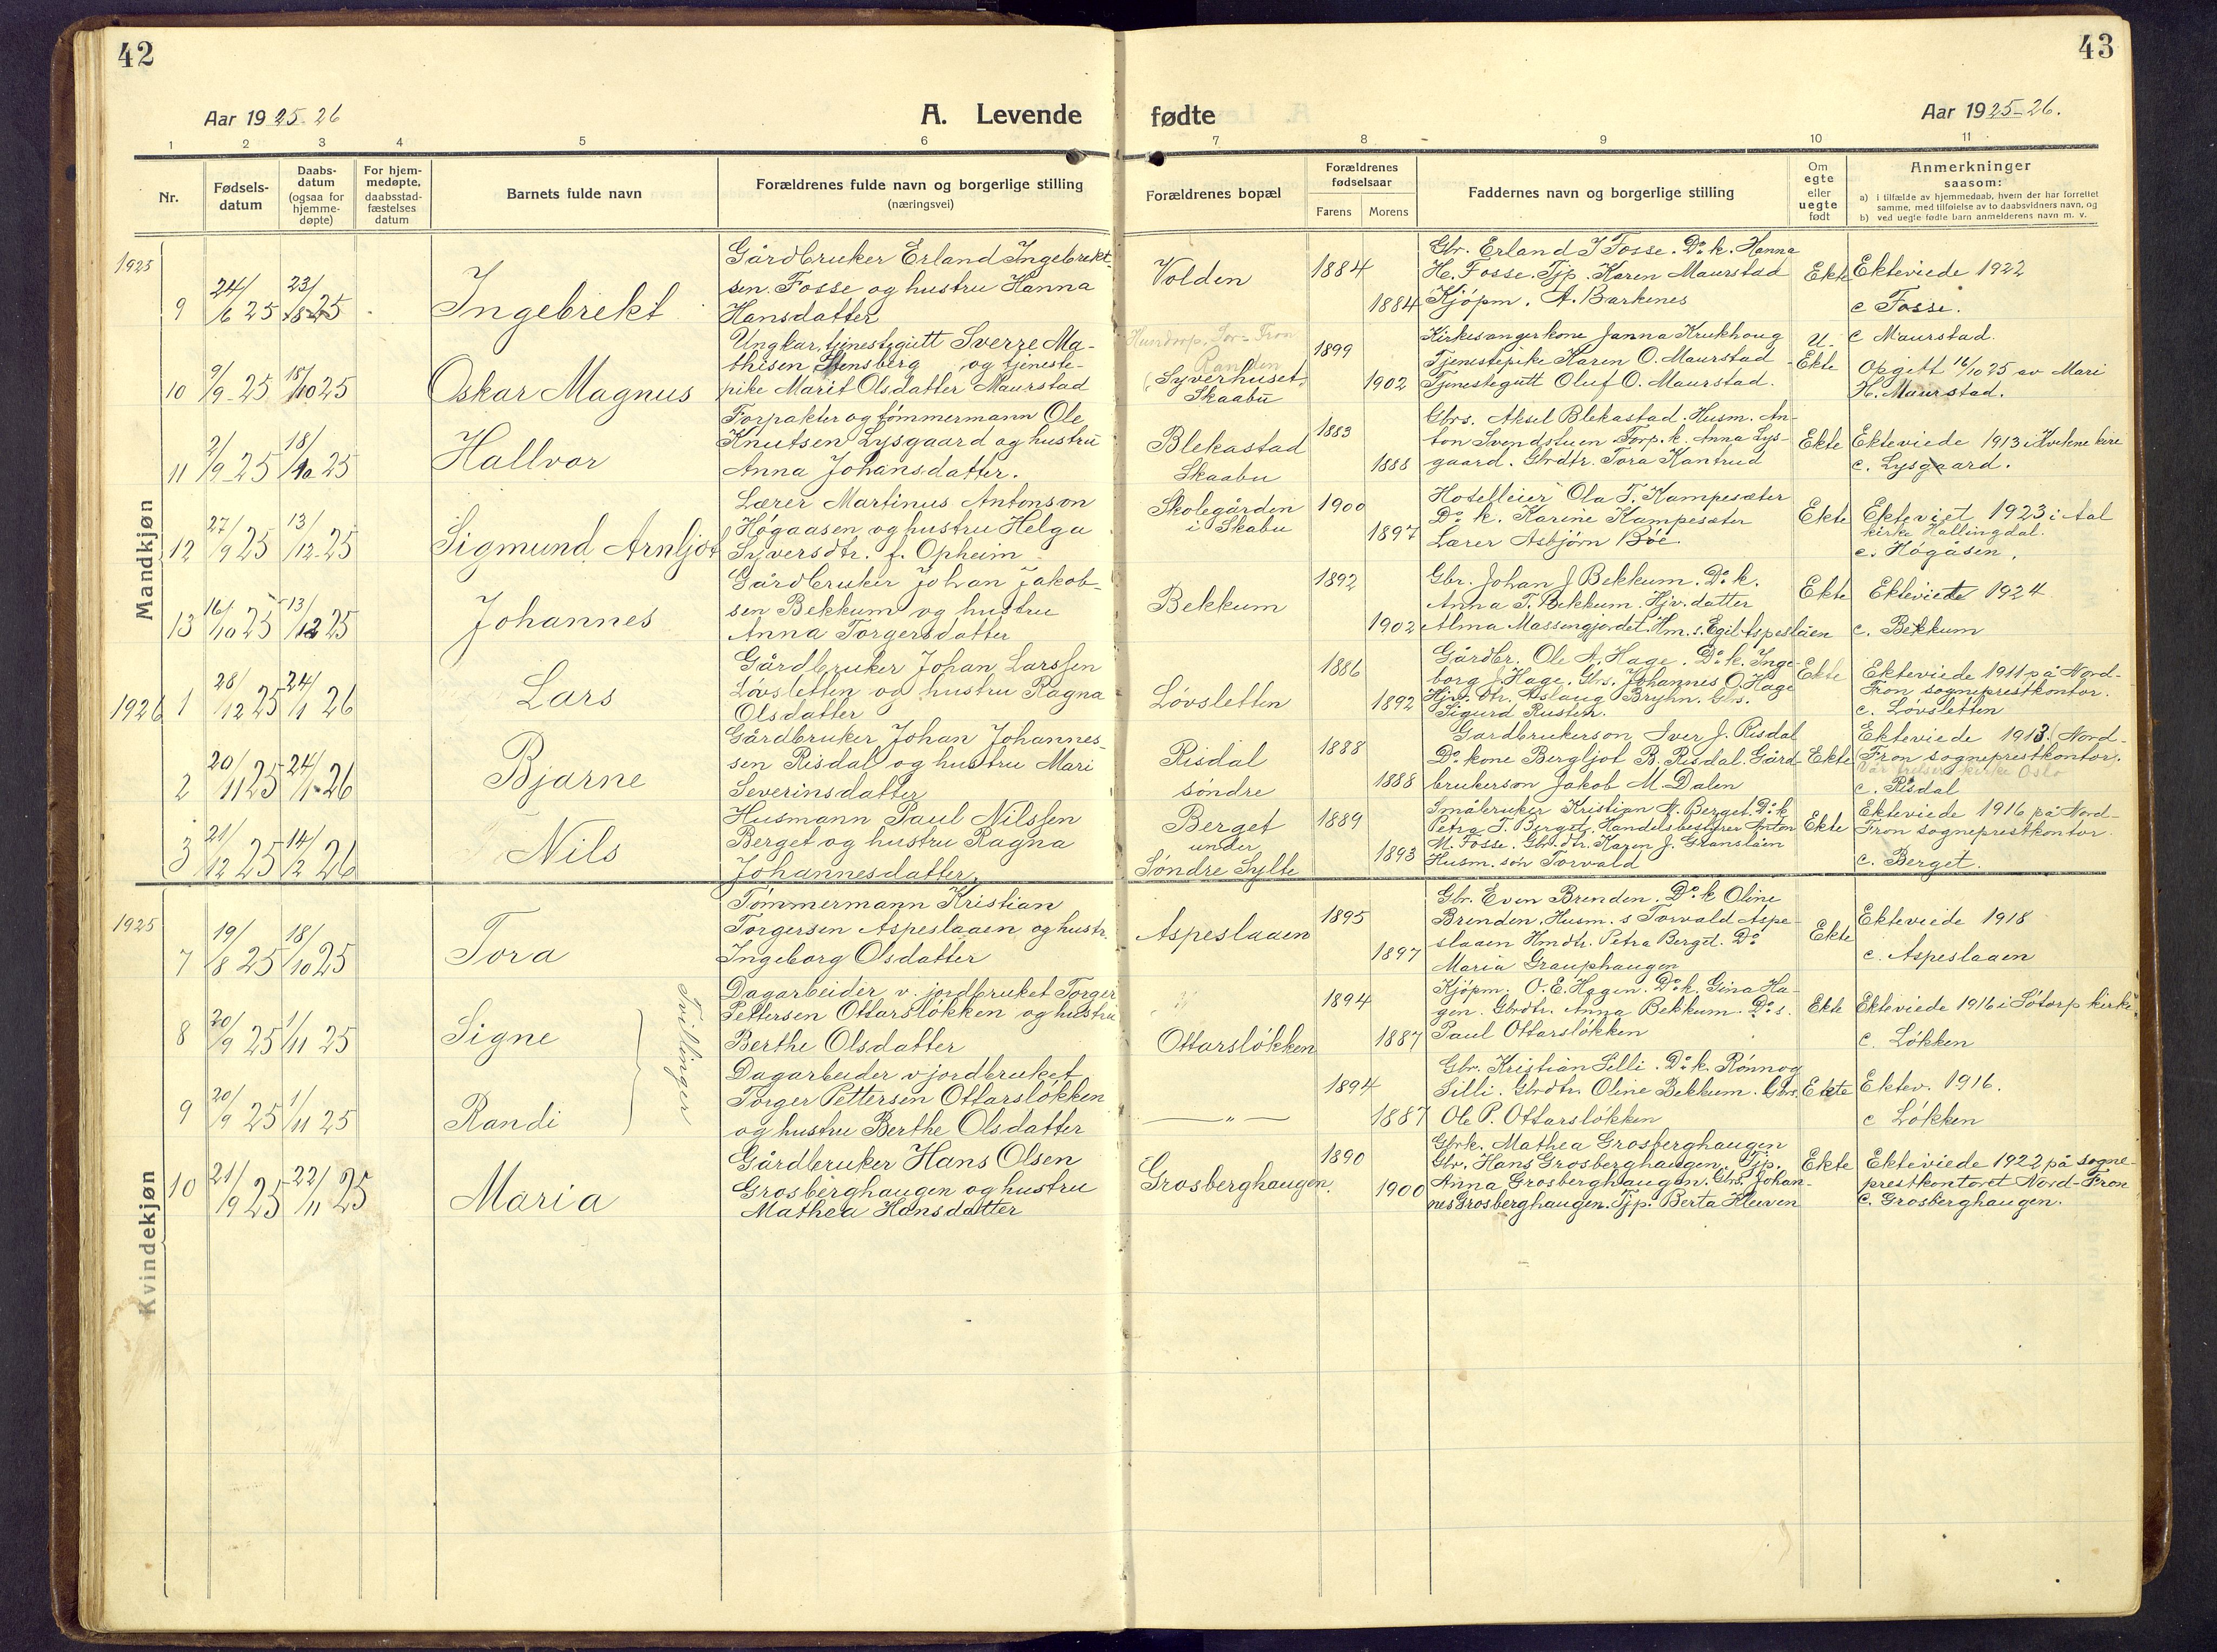 42
43
Aar 1925-26
A. Levende fødte
Aar 1925-26.
1 2 3 4 5 6 7 8 9 10 11
Nr.
Fødsels-
datum
Daabs-
datum
(ogsaa for
hjemme-
døpte)
For hjem-
medøpte,
daabsstad-
fæstelses
datum
Barnets fulde navn
Forældrenes fulde navn og borgerlige stilling
(næringsvei)
Forældrenes bopæl
Forældrenes
fødselsaar
Farens Morens
Faddernes navn og borgerlige stilling
Om
egte
eller
uegte
født
Anmerkninger
saasom:
a) i tilfælde av hjemmedaab, hvem der har forrettet
samme, med tilføielse av to daabsvidners navn, og
b) ved uegte fødte barn anmelderens navn m. v.
Mandkjøn
1925
9
24/6 25
23/8 25
Ingebrekt
Gårdbruker Erland Ingebrekt-
sen Fosse og hustru Hanna
Hansdatter
Volden
1884
1884
Gbr. Erland I Fosse. Do k. Hanna
H. Fosse. Tjp. Karen Maurstad
Kjöpm. A. Barkenes
Ekte
Ekteviede 1922
c Fosse.
10
9/9-25
18/10 25
Oskar Magnus
Ungkar, tjenestegutt Sverre Ma-
thisen Stensberg, og tjeneste-
pike Marit Olsdatter Maurstad
Hundorp, Sør-Fron
Syverhuset,
Skaabu
1899
1902
Kirkesangerkone Janna Krukhoug
Tjenestepike Karen O. Maurstad
Tjenestegutt Oluf O. Maurstad.
U-
Ekte
c Maurstad.
Opgitt 16/10 25 av Mari
H. Maurstad.
11
2/9-25
18/10 25
Hallvor
Forpakter og tömmermann Ole
Knutsen Lysgaard og hustru
Anna Johansdatter.
Blekastad
Skaabu
1883
1888
Gbrs. Aksel Blekastad. Husm. An-
ton Svendstuen Forp. k. Anna Lys-
gaard. Gbrdtr. Tora Kantrud
Ekte
Ekteviede 1913 i Kvikne kirke
c. Lysgaard.
12
27/9 25
13/12-25
Sigmund Arnljot
Lærer Martinus Antonson
Högaasen og hustru Helga
Syversdtr. f. Opheim
Skolegården
i Skabu
1900
1897
Hotelleier Ola T. Kampesæter
Do k. Karine Kampesæter
Lærer Asbjörn Böe
Ekte
Ekteviet 1923 i Aal
kirke Hallingdal.
c. Högåsen.
13
16/10 25
13/12 25
Johannes
Gårdbruker Johan Jakob-
sen Bekkum og hustru
Anna Torgersdatter
Bekkum
1892
1902
Gbr. Johan J Bekkum. Do k.
Anna T. Bekkum. Hjv. datter
Alma Massengjordet. Hm. s. Egil Aspeslåen
Ekte
Ekteviede 1924
c. Bekkum
1926
1
28/12 25
24/1 26
Lars
Gårdbruker Johan Larssen
Lövsletten og hustru Ragna
Olsdatter
Lövsletten
1886
1892
Gårdbr. Ole A. Hage. Do k. Inge-
borg J. Hage. Gbs. Johannes O. Hage
Hjv. dtr. Aslaug Bryhn. Gbs.
Sigurd Rusten.
Ekte
Ekteviede 1911 på Nord-
Fron sogneprestkontor.
c. Lövsletten
2
20/11 25
24/1-26
Bjarne
Gårdbruker Johan Johannes-
sen Risdal og hustru Mari
Severinsdatter
Risdal
söndre
1888
1888
Gardbrukerson Iver J. Risdal
Do kone Bergljot B. Risdal. Gård-
brukerson Jakob M. Dalen
Ekte
Ekteviede 1913. (Nord-
Fron sogneprestkontor).
Vår frelsers kirke Oslo
c. Risdal
3
21/12 25
14/2 26
Nils
Husmann Paul Nilssen
Berget og hustru Ragna
Johannesdatter
Berget
under
Söndre Sylte
1889
1893
Småbruker Kristian N. Berget. Do k
Petra T. Berget. Handelsbestyrer Anton
M. Fosse. Gbrdtr. Karen J. Granslåen
Husm. sön Torvald
Ekte
Ekteviede 1916 på Nord-
Fron sogneprestkontor.
c. Berget.
Kvindekjøn
1925
7
19/8 25
18/10 25
Tora
Tömmermann Kristian
Torgersen Aspeslaaen og hustr.
Ingeborg Olsdatter
Aspeslaaen
1895
1897
Gbr. Even Brenden. Do k Oline
Brenden. Husm. s Torvald Aspe-
slaaen Hmdtr. Petra Berget. Do
Maria Grauphaugen
Ekte
Ekteviede 1918
c. Aspeslaaen
8
20/9 25
1/11 25
Signe
Tvillinger
Dagarbeider v. jordbruket Torger
Pettersen Ottarslökken og hustru
Berthe Olsdatter
Ottarslökken
1894
1887
Kjöpm. O. E. Hagen. Do k. Gina Ha-
gen. Gbrdtr. Anna Bekkum. Do s.
Paul Ottarslökken
Ekte
Ekteviede 1916 i Södorp kirke
c. Lökken
9
20/9 25
1/11 25
Randi
Dagarbeider v jordbruket
Torger Pettersen Ottarslökken
og hustru Berthe Olsdatter
— " —
1894
1887
Gbr. Kristian Silli. Do k. Rönnog
Silli. Gbrdtr. Oline Bekkum. Gbrs.
Ole P. Ottarslökken
Ekte
Ektev. 1916.
c Lökken
10
21/9 25
22/11 25
Maria
Gårdbruker Hans Olsen
Grosberghaugen og hustru
Mathea Hansdatter
Grosberghaugen.
1890
1900
Gbrk. Mathea Grosberghaugen
Gbr. Hans Grosberghaugen. Tjp.
Anna Grosberghaugen. Gbs. Johan-
nes Grosberghaugen. Tjp. Berta Kleiven
Ekte
Ekteviede 1922 på sogne-
prestkontoret Nord-Fron
c. Grosberghaugen.